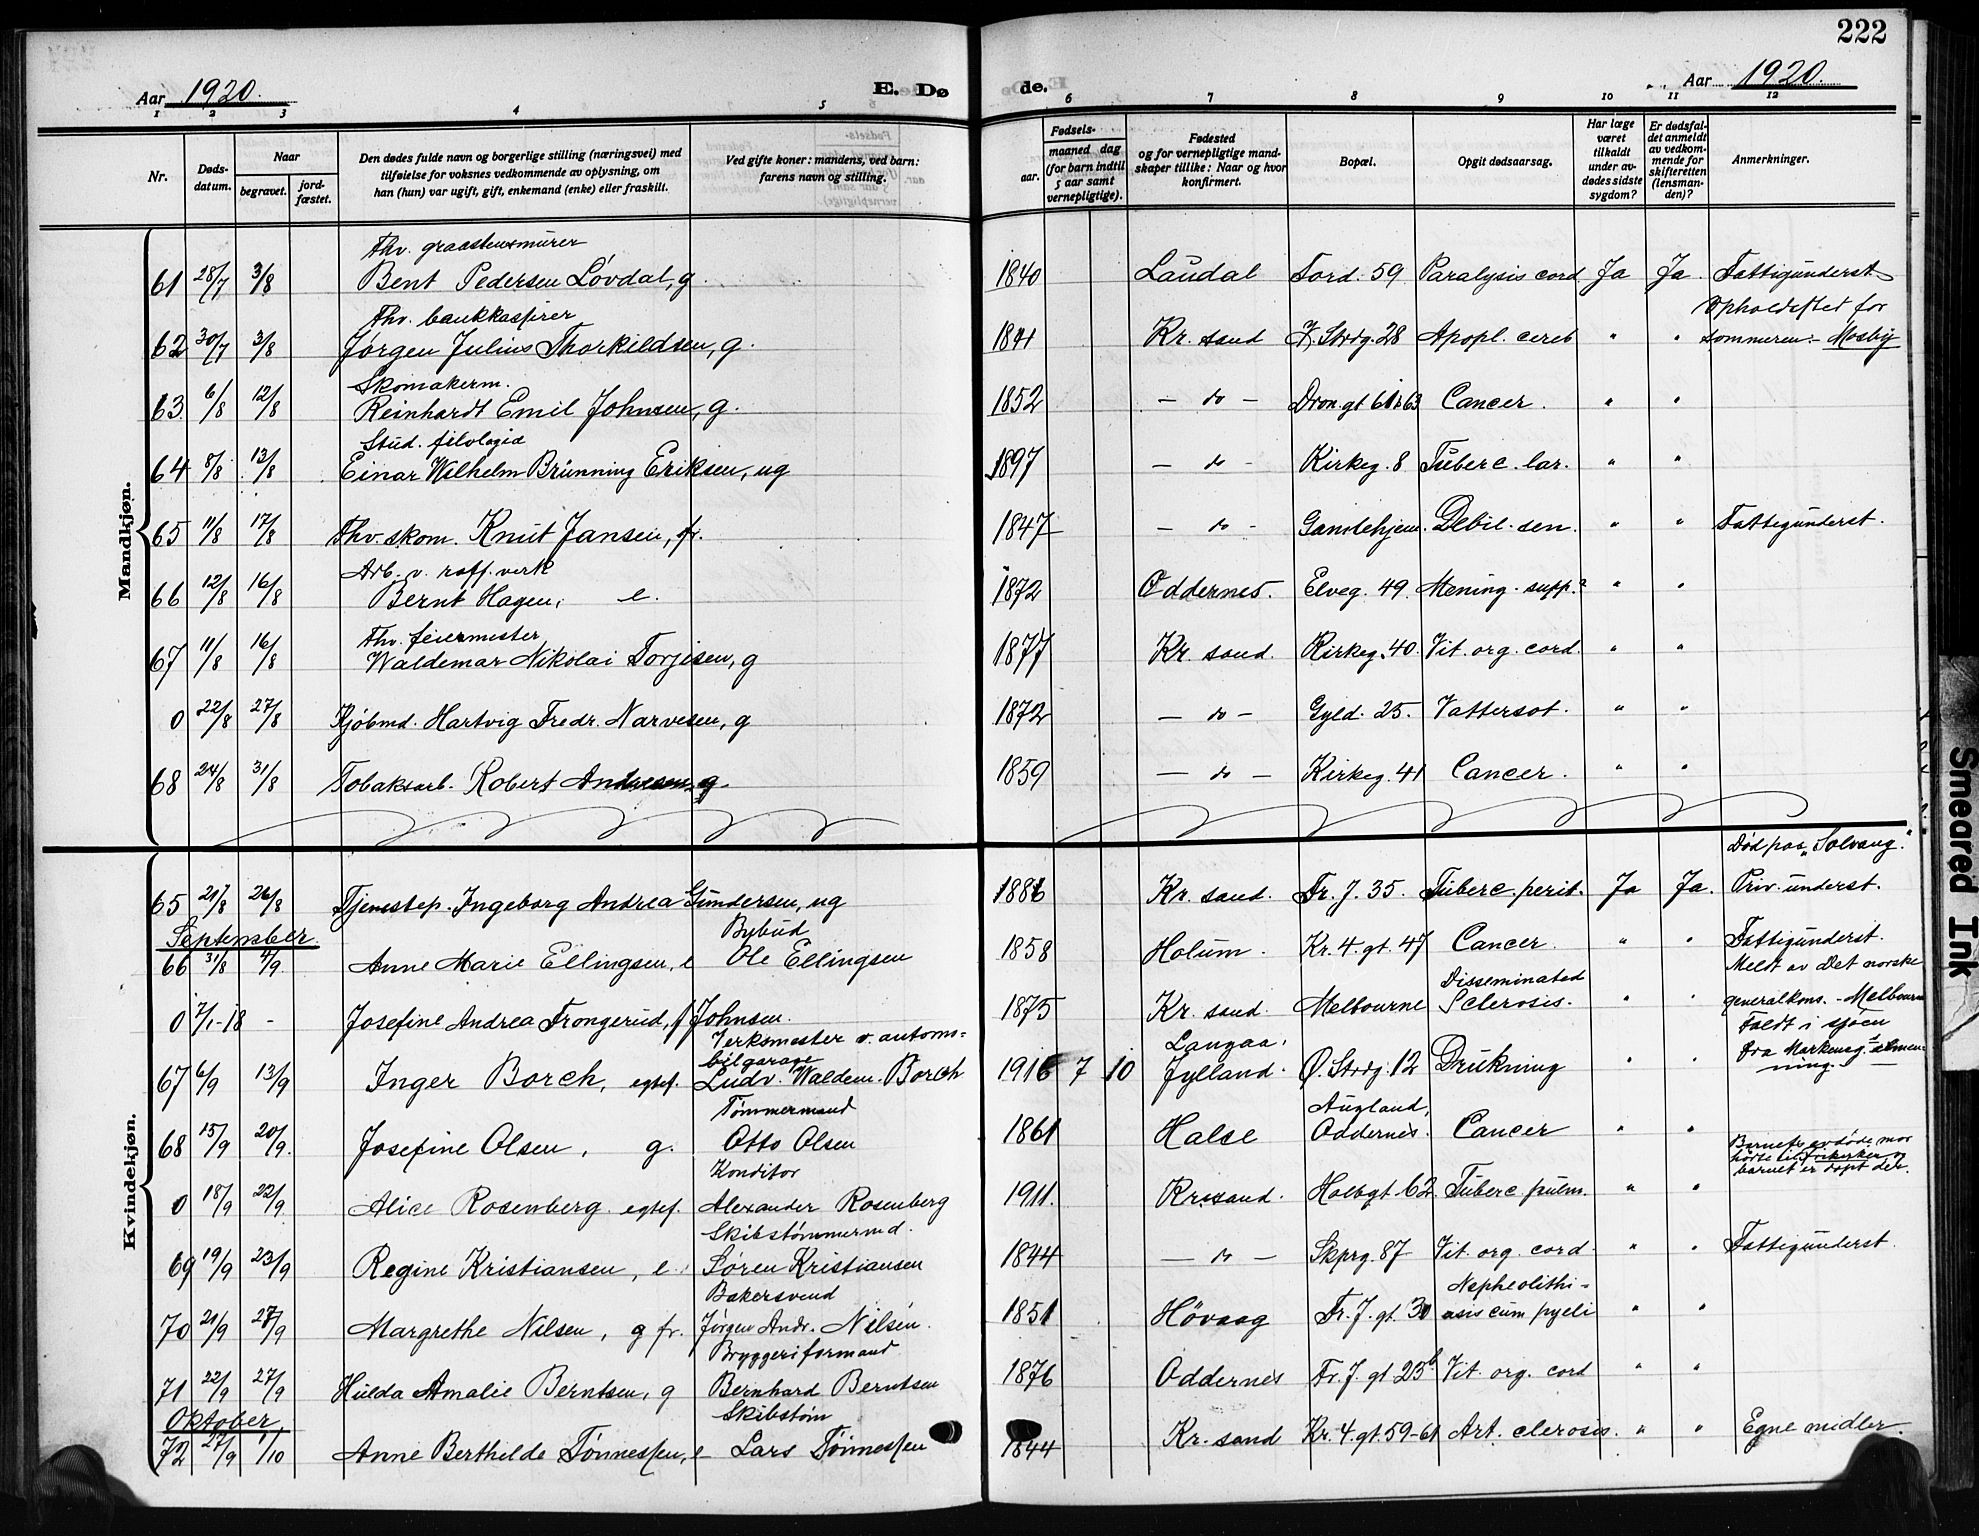 222
Aar 1920.
E. Dø
de.
Aar 1920.
1 2 3 4 5 6 7 8 9 10 11 12
Nr.
Døds-datum.
Naar
begravet.
jord-fæstet.
Den dødes fulde navn og borgerlige stilling (næringsvei) med tilføielse for voksnes vedkommende av oplysning, om han (hun) var ugift, gift, enkemand (enke) eller fraskilt.
Ved gifte koner: mandens, ved barn: farens navn og stilling.
Fødsels-
aar.
maaned dag (for barn indtil 5 aar samt vernepligtige).
Fødested og for vernepligtige mandskaper tillike: Naar og hvor konfirmert.
Bopæl.
Opgit dødsaarsag.
Har læge været tilkaldt under av-dødes sidste sygdom?
Er dødsfal-det anmeldt av vedkom-mende for skifteretten (lensman-den)?
Anmerkninger.
Mandkjøn.
Fhv. graastensmurer
61 28/7 3/8 Bent Pedersen Løvdal, g. 1840 Laudal Tord. 59 Paralysis cord Ja Ja Fattigunderst.
Fhv. bankkasserer Opholdsstet for
62 30/7 3/8 Jørgen Julius Thorkildsen, g. 1841 Kr. sand V. Strdg. 28 Apopl. cereb " " sommeren:- Mosby
Skomakerm.
63 6/8 12/8 Reinhardt Emil Johnsen, g. 1852 - do - Dron. gt 61-63 Cancer. " "
Stud. filologia
64 8/8 13/8 Einar Wilhelm Brünning Eriksen, ug 1897 - do - Kirkeg. 8 Tuberc. lar. " "
65 11/8 17/8 Fhv. skom. Knut Jansen, fr. 1847 - do - Gamlehjem. Debil. sen. " " Fattigunderst.
Arb. v. raff. verk
66 12/8 16/8 Bernt Hagen, e. 1872 Oddernes. Elveg. 49. Mening. supp.? " "
Fhv. feiermester
67 11/8 16/8 Waldemar Nikolai Torjesen, g 1877 Kr. sand. Kirkeg. 40. Vit. org. cord " "
0 22/8 27/8 Kjøbmd. Hartvig Fredr. Narvesen, g 1872 - do - Gyld. 25. Vattersot. " "
68 24/8 31/8 Tobaksarb. Robert Andresen, g. 1859 - do - Kirkeg. 41 Cancer. " "
Kvindekjøn.
Død paa „Solvang."
65 21/8 26/8 Tjenestep. Ingeborg Andrea Gundersen, ug 1881 Kr. sand. Fr. J. 35. Tuberc. perit. Ja Ja. Priv. underst.
September Bybud
66 31/8 4/9. Anne Marie Ellingsen, e Ole Ellingsen 1858 Holum. Kr. 4. gt. 47 Cancer. " " Fattigunderst.
Disseminated Meldt av Det norske
0 7/1-18 - Josefine Andrea Frongerud, f. Johnsen. 1875 Kr. sand. Melbourne Sclerosis. " " generalkons. - Melbourne
Verksmester v. automo-bilgarage Langaa, Faldt i sjøen
67 6/9 13/9 Inger Borch, egtef. Ludv. Waldem. Borch 1916 7 10 Jylland. Ø. Strdg. 12 Drukning " " fra Markensg. almen-ning.
Tømmermand Augland,
68 15/9 20/9. Josefine Olsen, g. Otto Olsen 1861 Halse Oddernes. Cancer " "
Konditor Barnets avdøde mor hørte til Frikirken og barnet er døpt der.
0 18/9 22/9 Alice Rosenberg egtef. Alexander Rosenberg 1911. Kr.sand. Holbgt 62 Tuberc pulm. " "
Skibstømmermd.
69 19/9 23/9 Regine Kristiansen, e. Søren Kristiansen 1844 - do - Skprg. 87 Vit. org. cord. " " Fattigunderst.
Bakersvend Nepheolithi-
70 21/9 27/9 Margrethe Nilsen, g fr. Jørgen Andr. Nilsen. 1851 Høvaag Fr. J. gt. 30 asis cum pyeli " "
Bryggeriformand
71 22/9 27/9 Hulda Amalie Berntsen, g Bernhard Berntsen 1876 Oddernes Fr. J. gt 25b Vit. org. cord " "
Oktober Skibstøm
72 27/9 1/10 Anne Berthilde Tønnessen, e Lars Tønnessen 1844 Kr. sand Kr. 4. gt. 59-61 Art. clerosis. " " Egne midler.
Smeared Ink